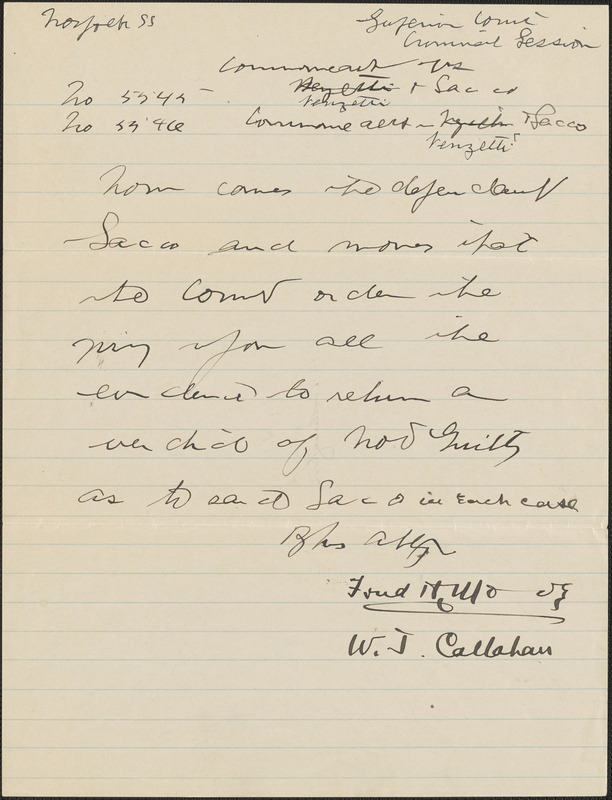 Norfolk SS
Superior Court
Criminal Session
Commonwealth vs
No 5545 Venzetti & Sacco
Venzetti
No 5546 Commonwealth & Sacco
Venzetti
Now comes the defendant
Sacco and moves that
the Court order the
jury upon all the
evidence to return a
verdict of Not Guilty
as to said Sacco in each case
By his Atty
Fred H. Moore
W. J. Callahan